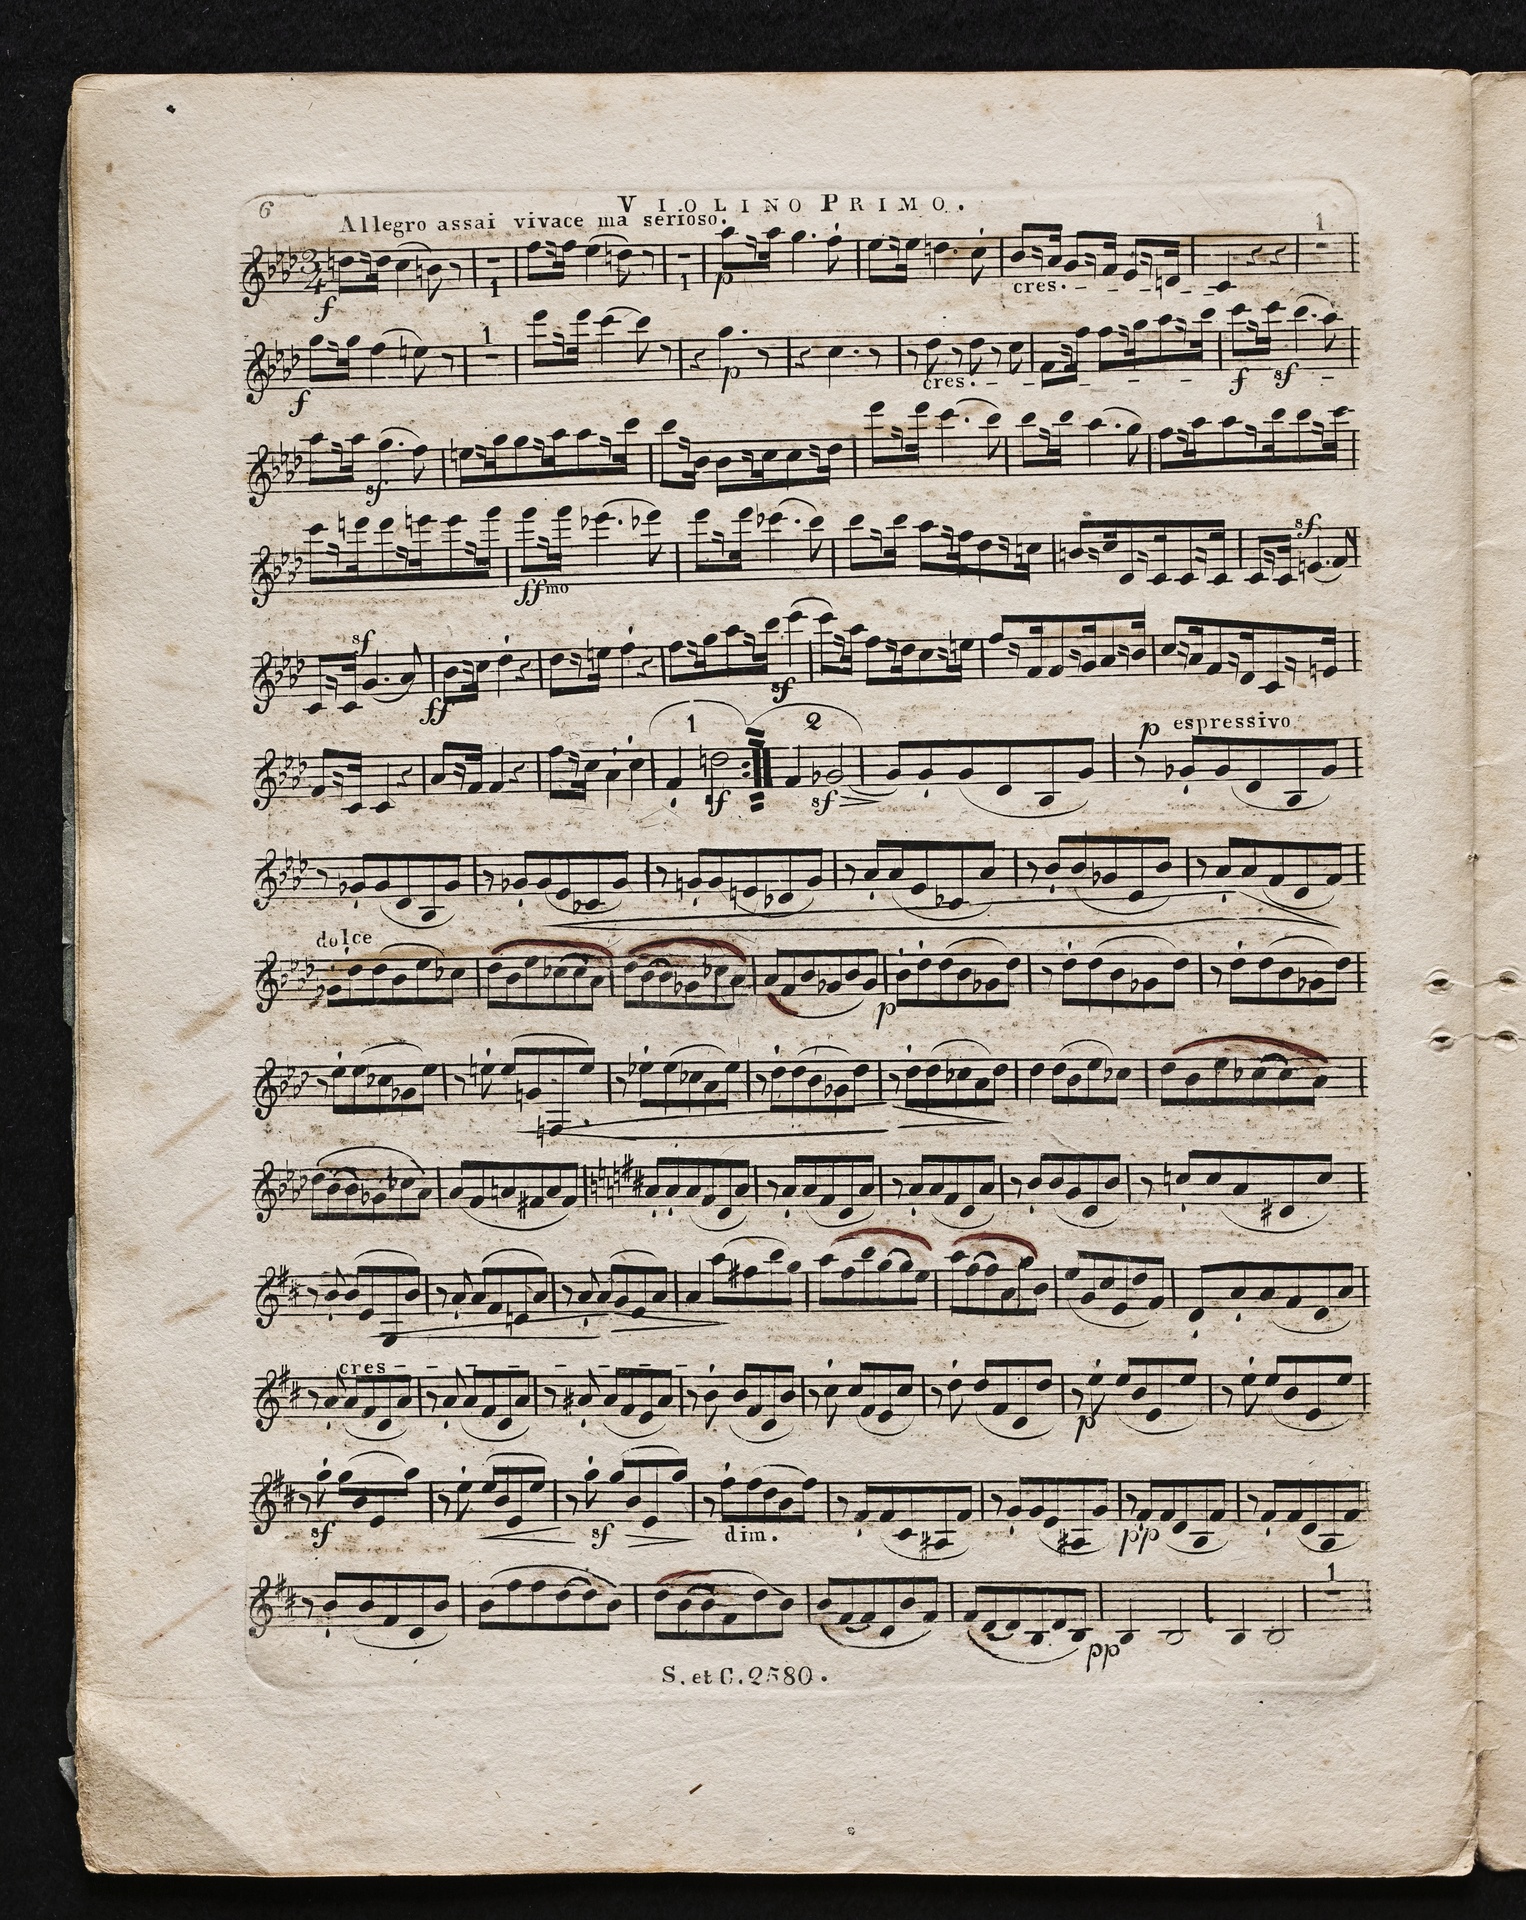 6
VIOLINO PRIMO.
Allegro assai vivace ma serioso.
1
f 1 1 p cres.
1
f p cres. f sf
sf
sf
ffmo
sf
ff sf
1 2
p espressivo
sf sf
dolce
p
cres
p
sf sf dim. pp
1
pp
S. et C. 2580.